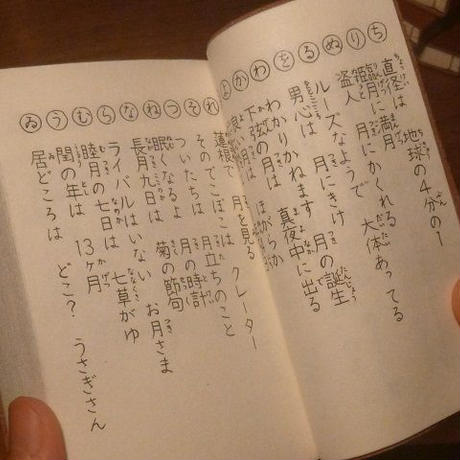 ちりぬるをわかよ
直径は 地球の4分の1
月に 満月
盗人 月にかくれる
ルーズなようで 大体あってる
男心は 月にきけ
わかりかねます 月の誕生
下弦の月は 真夜中に出る
月は ほがらか
れそつねならむうゐ
蓮根で 月を見る
そのでこぼこは クレーター
ついたちは 月立ちのこと
眠くなるよ 月の時計
長月九日は 菊の節句
ライバルはいない お月さま
睦月の七日は 七草がゆ
閏の年は 13ヶ月
居どころは どこ? うさぎさん